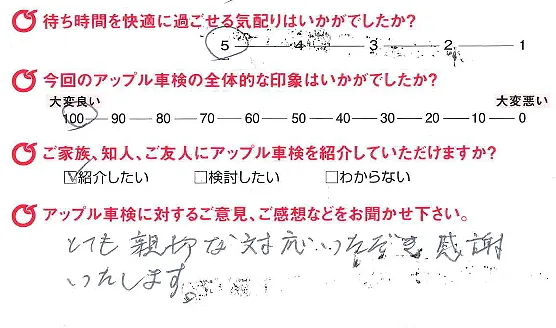 待ち時間を快適に過ごせる気配りはいかがでしたか?
5 — 4 — 3 — 2 — 1
今回のアップル車検の全体的な印象はいかがでしたか?
大変良い 大変悪い
100 — 90 — 80 — 70 — 60 — 50 — 40 — 30 — 20 — 10 — 0
ご家族、知人、ご友人にアップル車検を紹介していただけますか?
☑紹介したい □検討したい □わからない
アップル車検に対するご意見、ご感想などをお聞かせ下さい。
とても親切な対応いただき感謝
いたします。